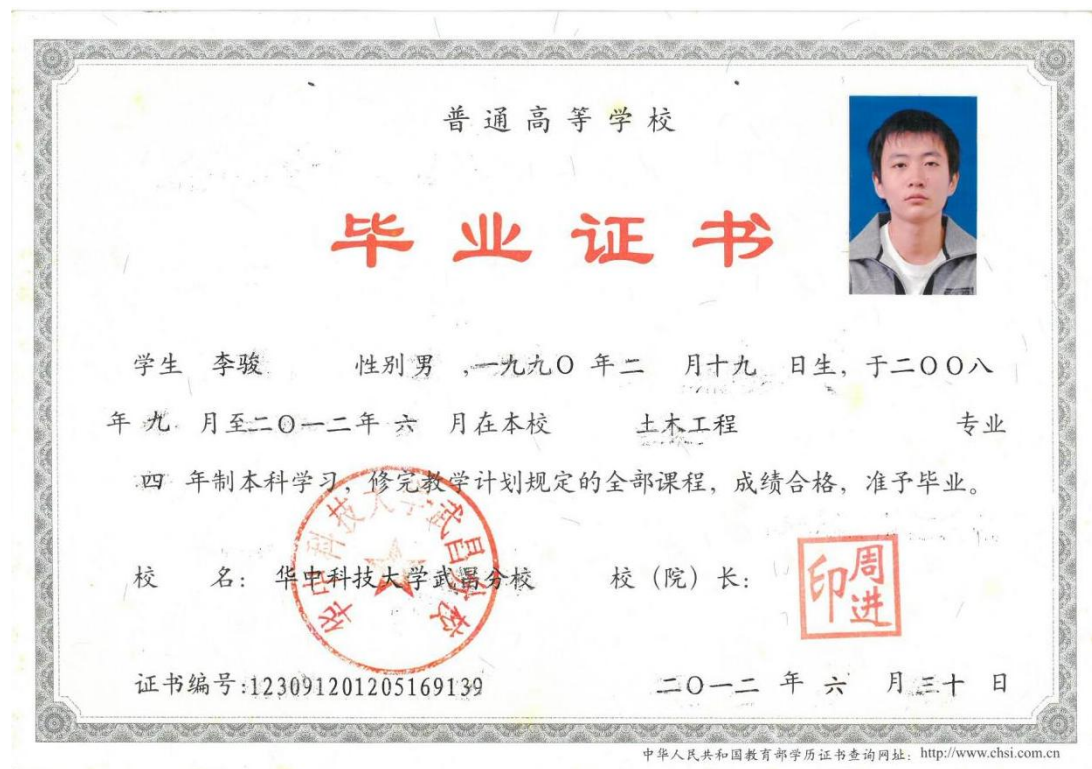 普通高等学校
毕业证书
学生 李骏 性别 男 ,一九九〇 年 二 月 十九 日生, 于二〇〇八
年 九 月至二〇一二年 六 月在本校 土木工程 专业
四 年制本科学习, 修完教学计划规定的全部课程, 成绩合格, 准予毕业。
华中科技大学武昌分校
校 名: 华中科技大学武昌分校 校(院)长: 周进印
证书编号:123091201205169139 二〇一二 年 六 月 三十 日
中华人民共和国教育部学历证书查询网址: http://www.chsi.com.cn